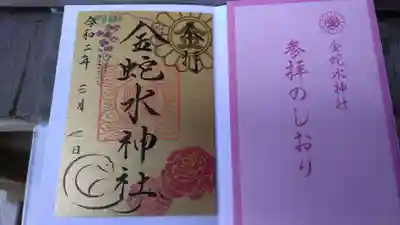 金蛇水神社
令和二年 三月 七日
金蛇水神社
参拝のしおり